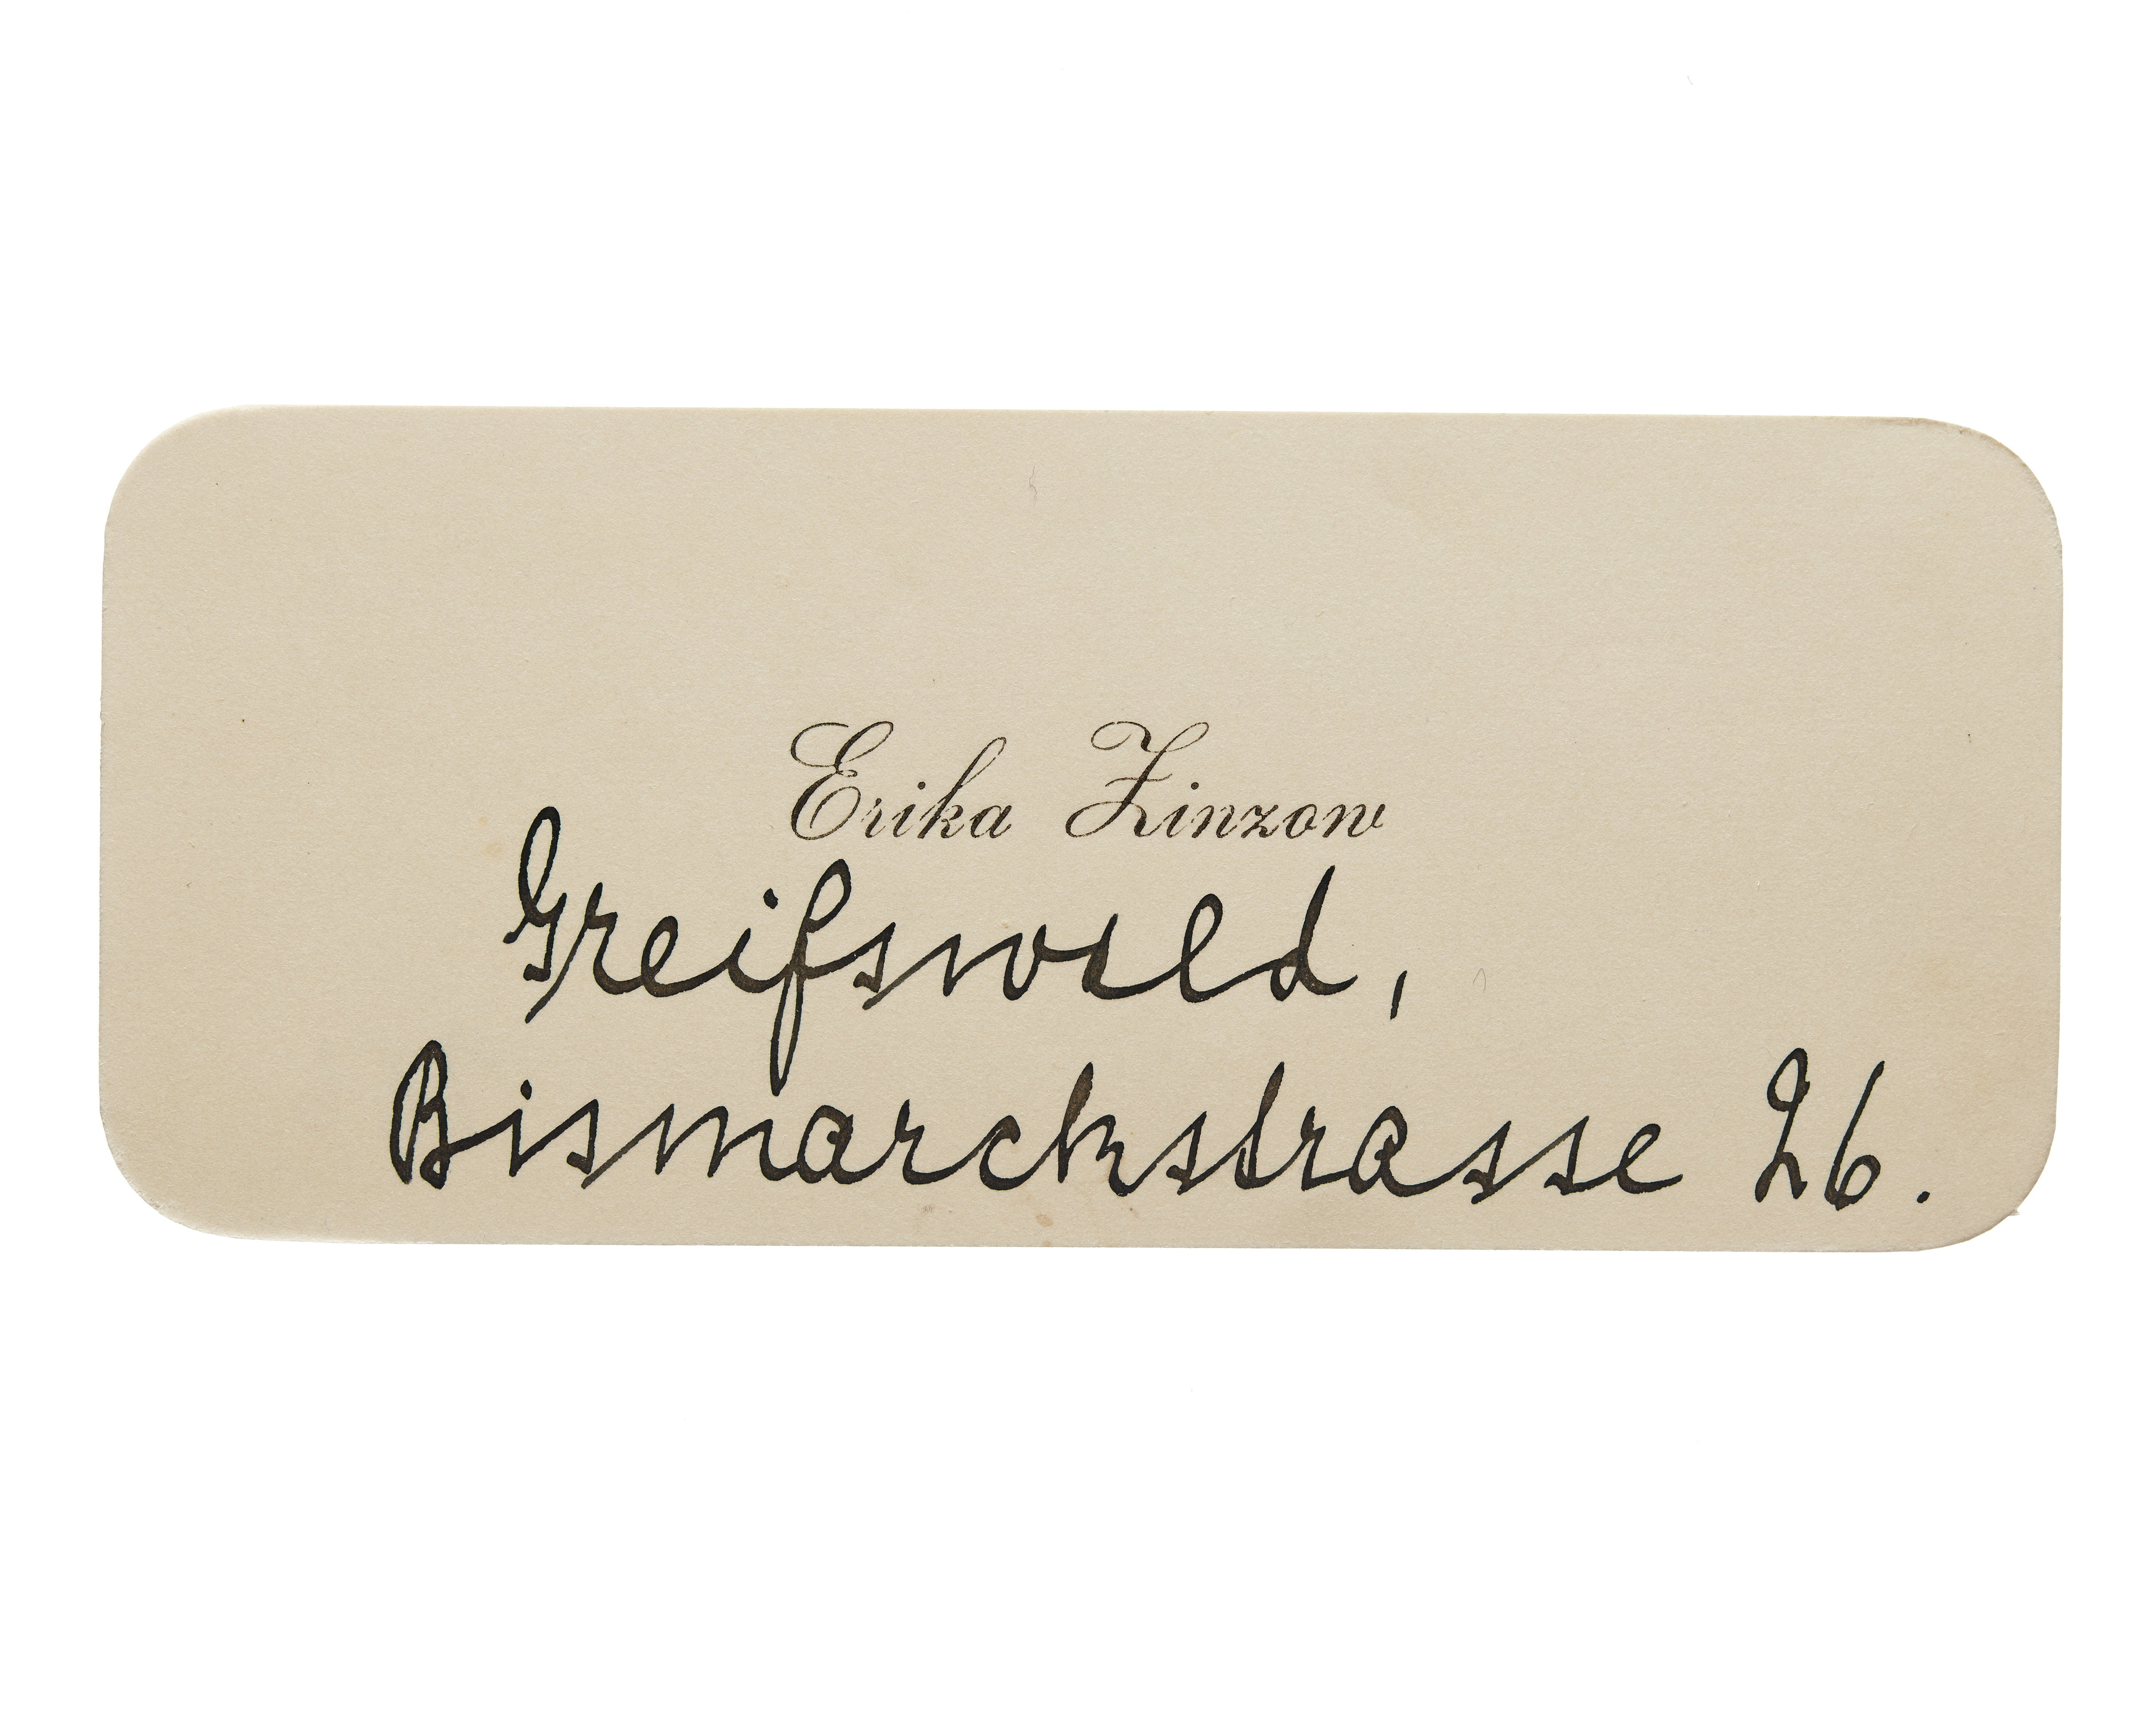 Erika Zinzow
Greifswald,
Bismarckstrasse 26.